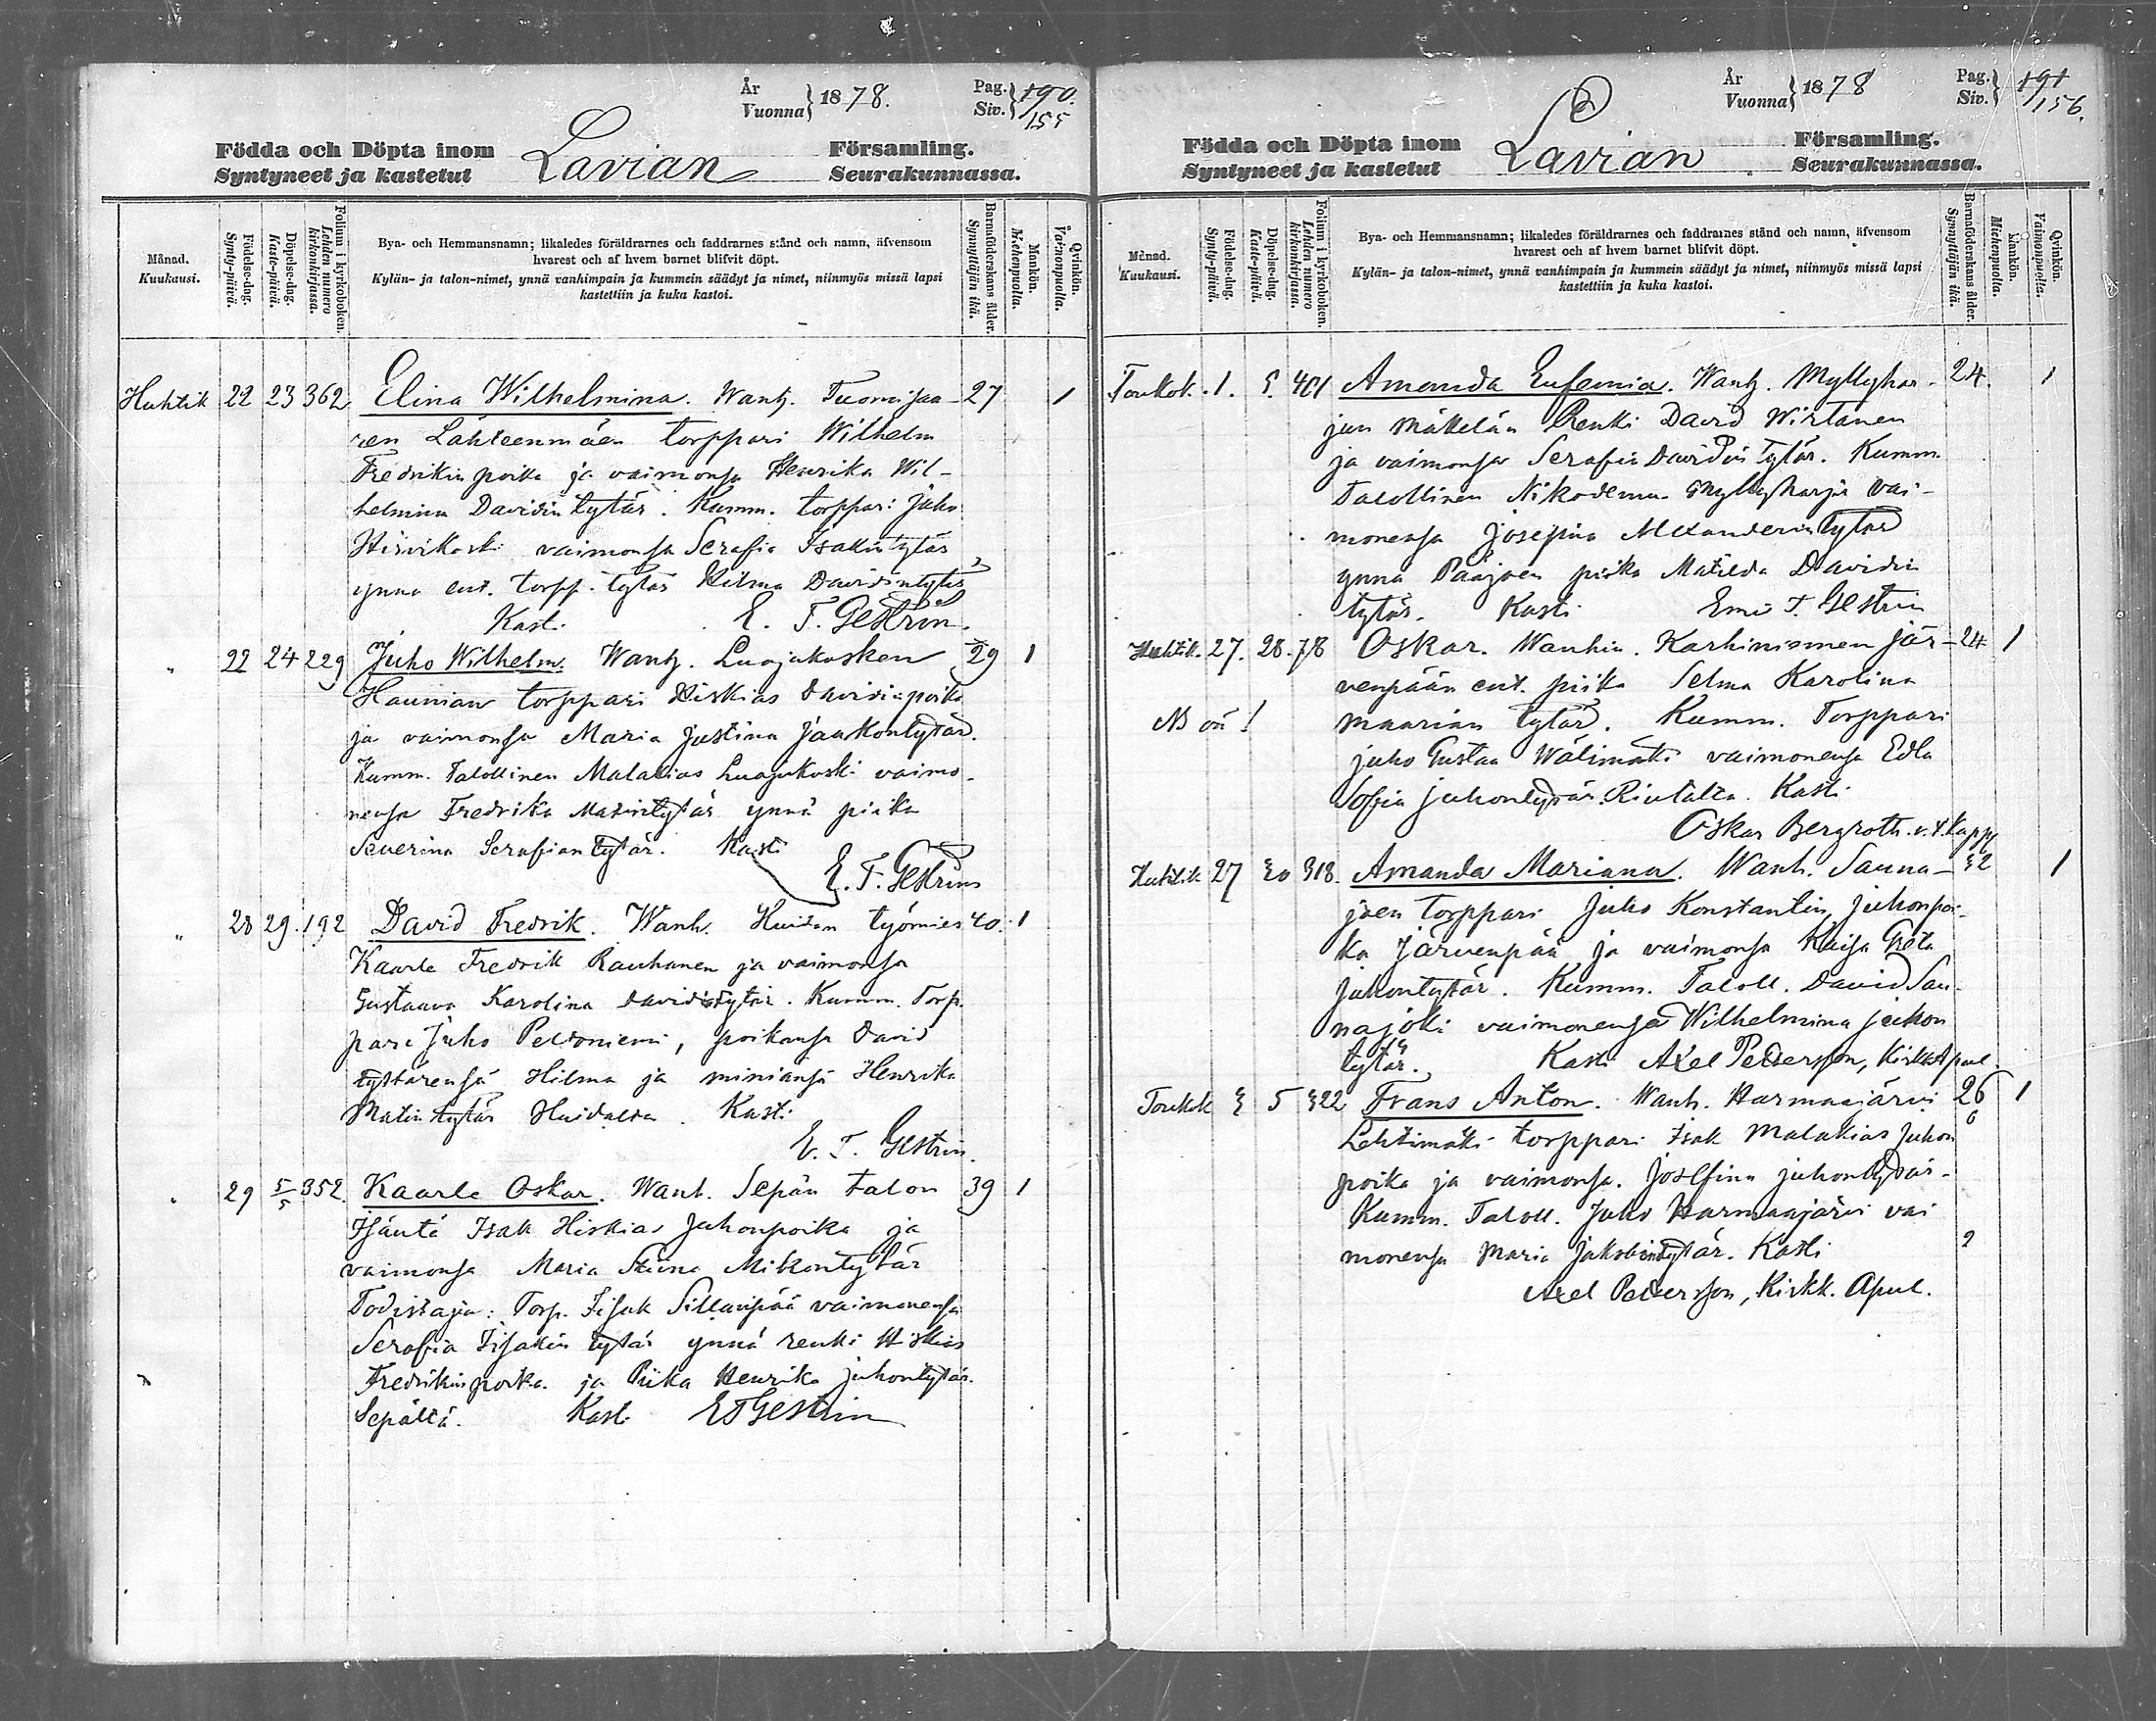 År
Vuonna } 1878.
Pag.
Siv. } 190.
155
Födda och Döpta inom
Syntyneet ja kastetut
Lavian
Församling.
Seurakunnassa.
Månad.
Kuukausi.
Födelse-dag.
Synty-päivä.
Döpelse-dag.
Kaste-päivä.
Folium i kyrkoboken.
Lehden numero kirkonkirjassa.
Bya- och Hemmansnamn; likaledes föräldrarnes och faddrarnes stånd och namn, äfvensom
hvarest och af hvem barnet blifvit döpt.
Kylän- ja talon-nimet, ynnä vanhimpain ja kummein säädyt ja nimet, niinmyös missä lapsi
kastettiin ja kuka kastoi.
Barnaföderskans ålder.
Synnyttäjän ikä.
Mankön.
Miehenpuolta.
Qvinkön.
Vaimonpuolta.
Huhtik 22 23 362 Elina Wilhelmina. Wanh. Tuomisaa- 27 1
ren Lähteenmäen torppari Wilhelm
Fredrikin poika ja vaimonsa Henrika Wil-
helmina Davidin tytär. Kumm. torppari Juho
Hirvikoski vaimonsa Serafia Isakintytär
ynnä ent. torpp. tytär Hilma Davidintytär
Kast. E. F. Gestrin.
" 22 24 229 Juho Wilhelm. Wanh. Luojukosken 29 1
Haunian torppari Hiskias Davidinpoika
ja vaimonsa Maria Justina Jaakontytär.
Kumm. Talollinen Malakias Luojukoski vaimo-
nensa Fredrika Matintytär ynnä piika
Severina Serafian tytär. Kasti
E. F. Gestrin
" 28 29. 192 David Fredrik. Wanh. Huidan työmies 40. 1
Kaarle Fredrik Rauhanen ja vaimonsa
Gustaava Karolina Davidintytär. Kumm. Torp.
pari Juho Peldoniemi, poikansa David
tyttärensä Hilma ja miniänsä Henrika
Matin tytär Huidalda. Kasti
E. F. Gestrin.
" 29 5/5 352. Kaarle Oskar. Wanh. Sepän talon 39 1
Isäntä Isak Hiskias Juhonpoika ja
vaimonsa Maria Stiina Mikkontytär
Todistaja: Torp. Iisak Sillanpää vaimonensa
Serafia Iisakin tytär ynnä renki Hiskias
Fredrikinpoika ja Piika Henrika Juhontytär.
Sepältä. Kasti E F Gestrin
År
Vuonna } 1878
Pag.
Siv. } 191
156.
Födda och Döpta inom
Syntyneet ja kastetut
Lavian
Församling.
Seurakunnassa.
Månad.
Kuukausi.
Födelse-dag.
Synty-päivä.
Döpelse-dag.
Kaste-päivä.
Folium i kyrkoboken.
Lehden numero kirkonkirjassa.
Bya- och Hemmansnamn; likaledes föräldrarnes och faddrarnes stånd och namn, äfvensom
hvarest och af hvem barnet blifvit döpt.
Kylän- ja talon-nimet, ynnä vanhimpain ja kummein säädyt ja nimet, niinmyös missä lapsi
kastettiin ja kuka kastoi.
Barnaföderskans ålder.
Synnyttäjän ikä.
Mankön.
Miehenpuolta.
Qvinkön.
Vaimonpuolta.
Toukok. 1. 5. 401 Amanda Eufemia. Wanh. Myllyhar- 24. 1
jun Mäkelän Renki David Wirtanen
ja vaimonsa Serafia Davidin tytär. Kumm.
Talollinen Nikodemus Myllyharju vai-
monensa Josefina Alexanderin tytär
ynnä Pääjoen piika Matilda Davidin
tytär. Kasti Emil F. Gestrin
Huhtik. 27. 28. 78 Oskar. Wanhin. Karhiniemen Jär- 24 1
venpään ent. piika Selma Karolina
NB oä! Maarian tytär. Kumm. Torppari
Juho Gustaa Wälimäki vaimonensa Edla
Sofia Juhontytär. Riutalta. Kasti
Oskar Bergroth. v.t. Kappl
Huhtik 27 30 318. Amanda Mariana. Wanh. Sauna- 32 1
joen torppari Juho Konstantin, Juhonpoi-
ka Järvenpää ja vaimonsa Kaisa Greta
Juhontytär. Kumm. Taloll. David Sau-
najoki vaimonensa Wilhelmina Juhon
tytär. Kasti Axel Pettersson, Kirkk. Apul.
Toukok 3 5 322 Frans Anton. Wanh. Harmaajärvi 26 1
Lehtimäki torppari Isak Malakias Juhon
poika ja vaimonsa Josefina Juhontytär.
Kumm. Taloll. Juho Harmaajärvi vai
monensa Maria Jakobintytär. Kasti 2
Axel Pettersson, Kirkk. Apul.